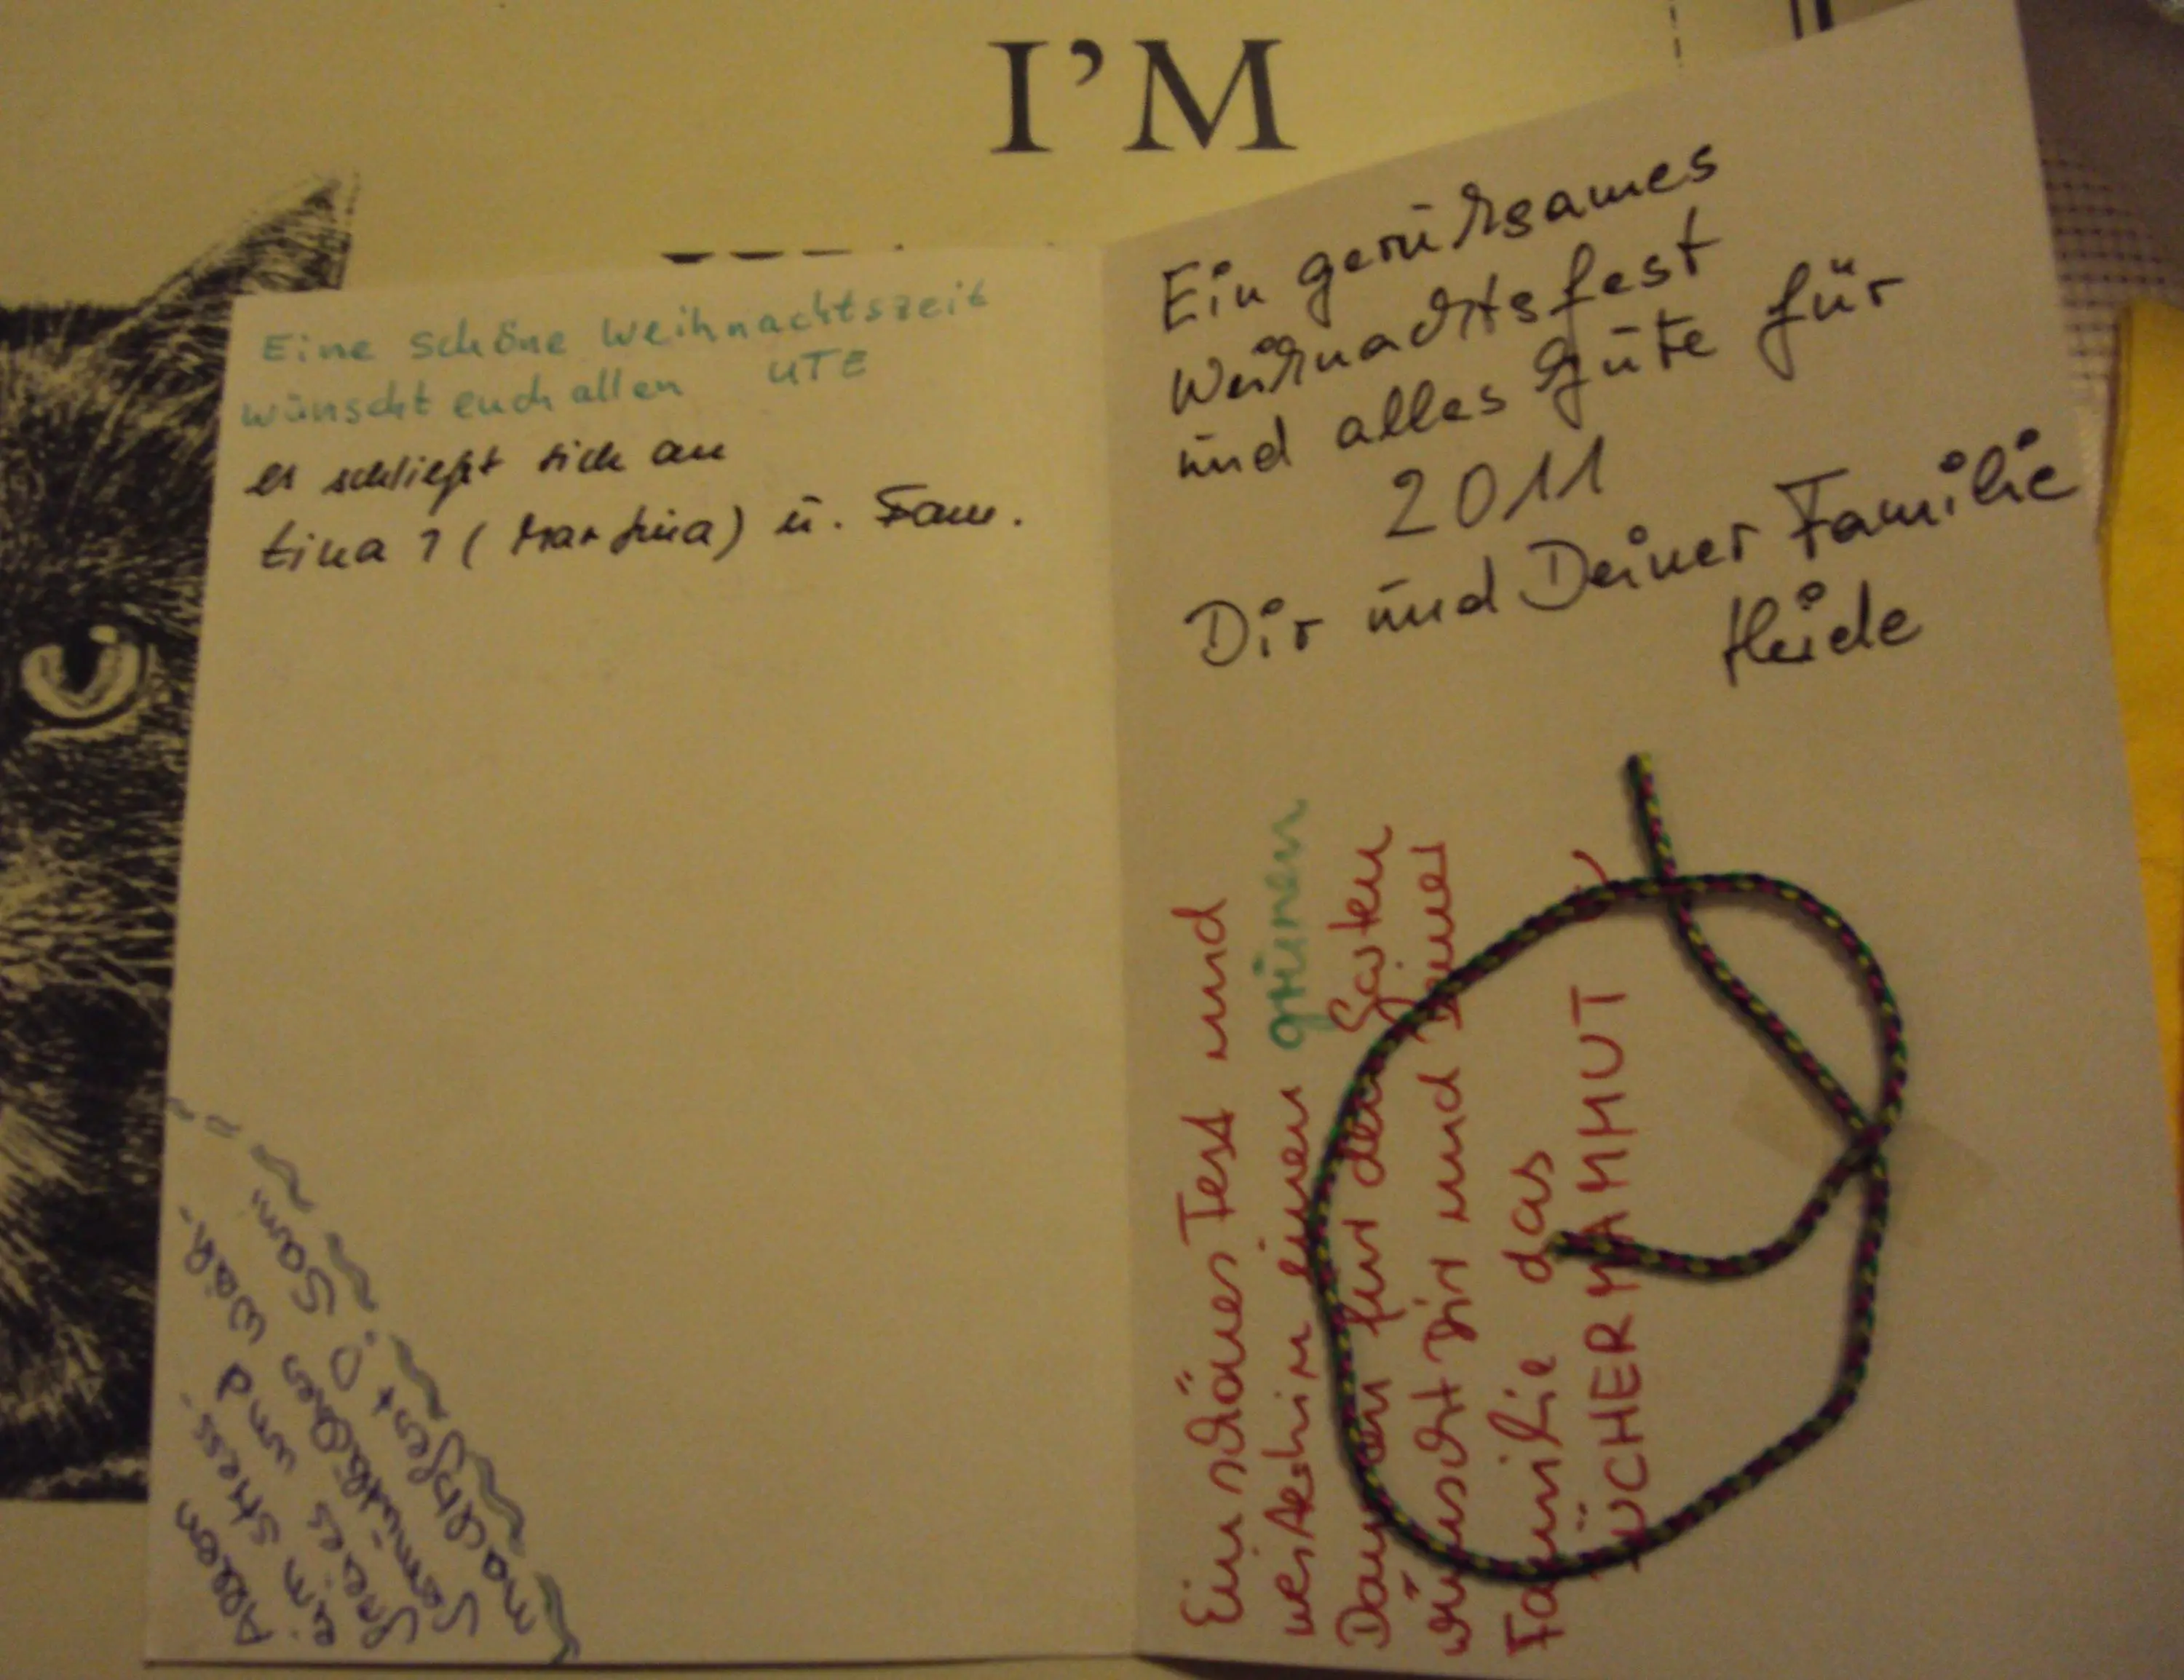 I'M
Eine schöne Weihnachtszeit
wünscht euch allen UTE
es schließt sich an
tina 1 (Martina) u. Fam.
Allem
ein stress-
freies und
gemütliches Weih-
nachtsfest :O Sami
Ein geruhsames
Weihnachtsfest
und alles Gute für
2011
Dir und Deiner Familie
Heide
Ein schönes Fest und
weiterhin einen grünen
Daumen für den Garten
wünscht Dir und Deiner
Familie das
BÜCHERMAMMUT